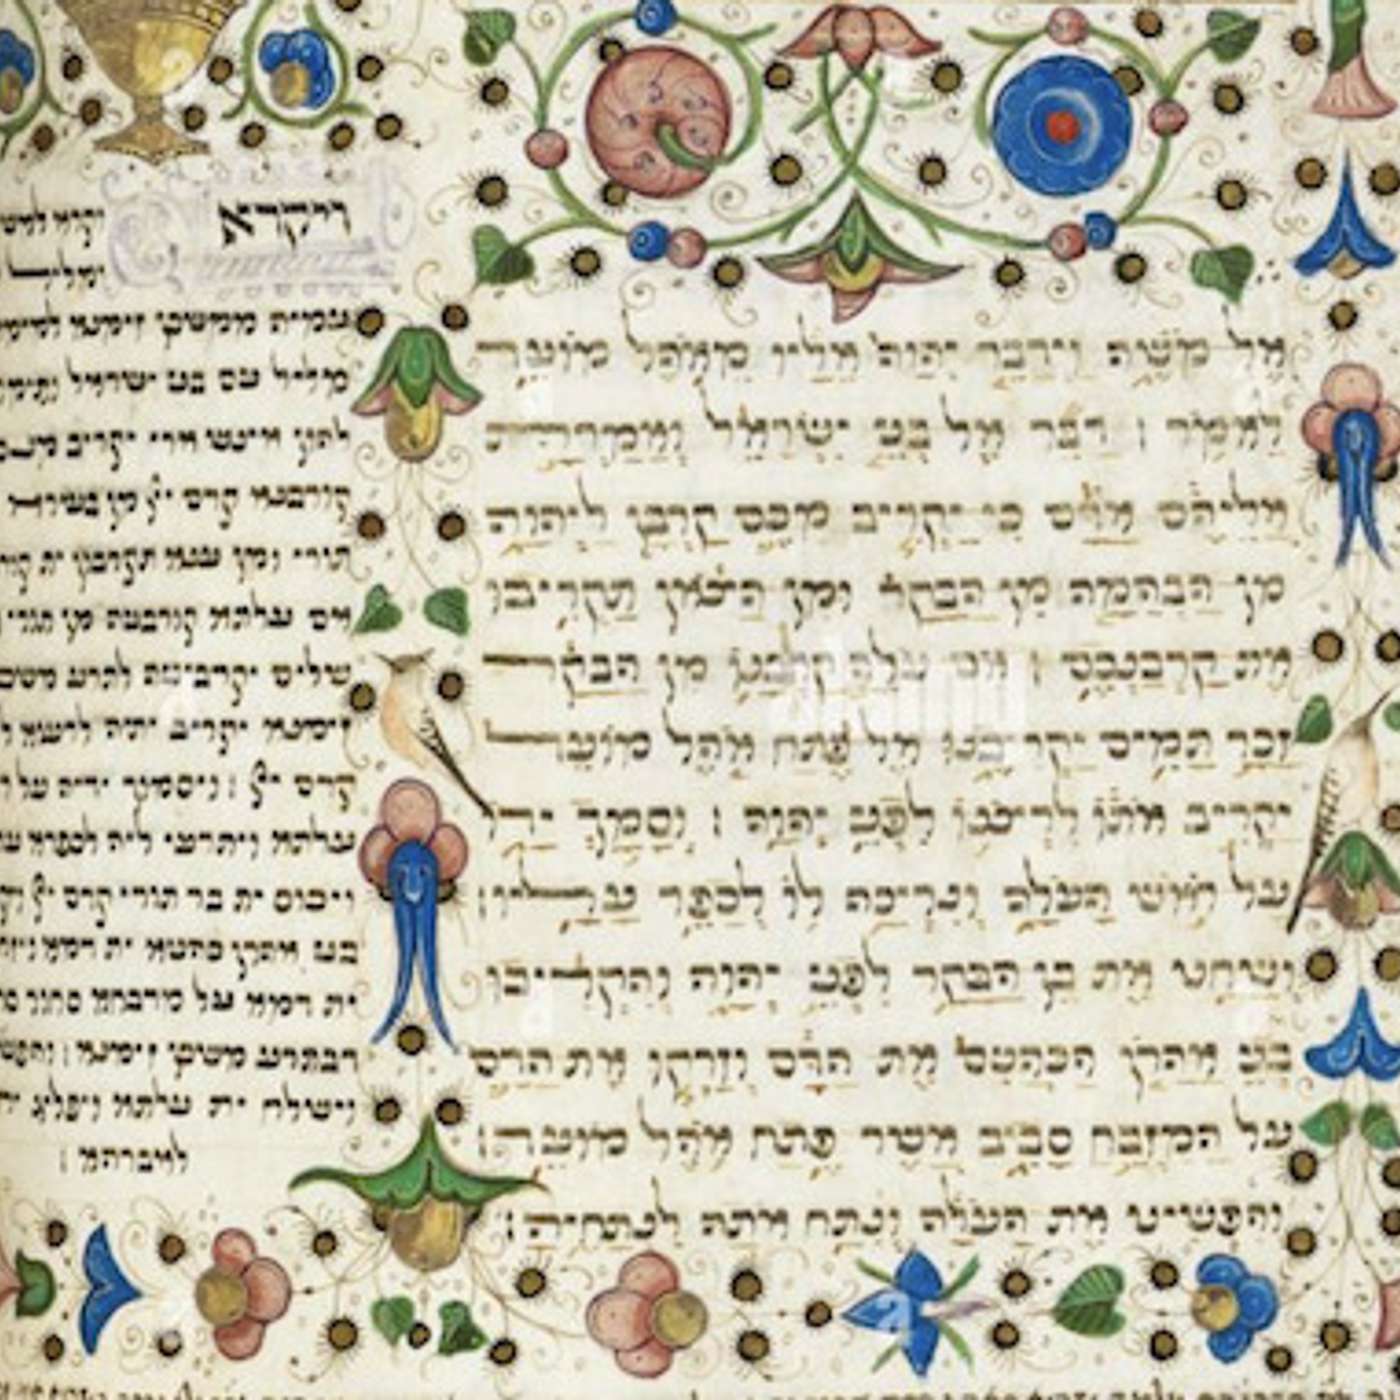 ויקרא
אל משה וידבר יהוה אליו מאהל מועד
לאמר ׃ דבר אל בני ישראל ואמרת
אליהם אדם כי יקריב מכם קרבן ליהוה
מן הבהמה מן הבקר ומן הצאן תקריבו
את קרבנכם ׃ אם עלה קרבנו מן הבקר
זכר תמים יקריבנו אל פתח אהל מועד
יקריב אתו לרצנו לפני יהוה ׃ וסמך ידו
על ראש העלה ונרצה לו לכפר עליו ׃
ושחט את בן הבקר לפני יהוה והקריבו
בני אהרן הכהנים את הדם וזרקו את הדם
על המזבח סביב אשר פתח אהל מועד ׃
והפשיט את העלה ונתח אתה לנתחיה ׃
וקרא
ומליל
עמיה ממשכן זימנא
מליל עם בני ישראל
להון אינש ארי יקריב
קורבנא קדם יי מן בעירא
תורי ומן ענא תקרבון ית
אם עלתא קורבניה מן תורי
שלים יקרביניה לתרע
זימנא יקריב יתיה לרעוא
קדם יי ׃ ויסמוך ידיה על
עלתא ויתרעי ליה לכפרא
ויכוס ית בר תורי קדם יי
בני אהרן כהניא ית דמא
ית דמא על מדבחא סחור
דבתרע משכן זימנא ׃
וישלח ית עלתא ויפליג
לאברהא ׃